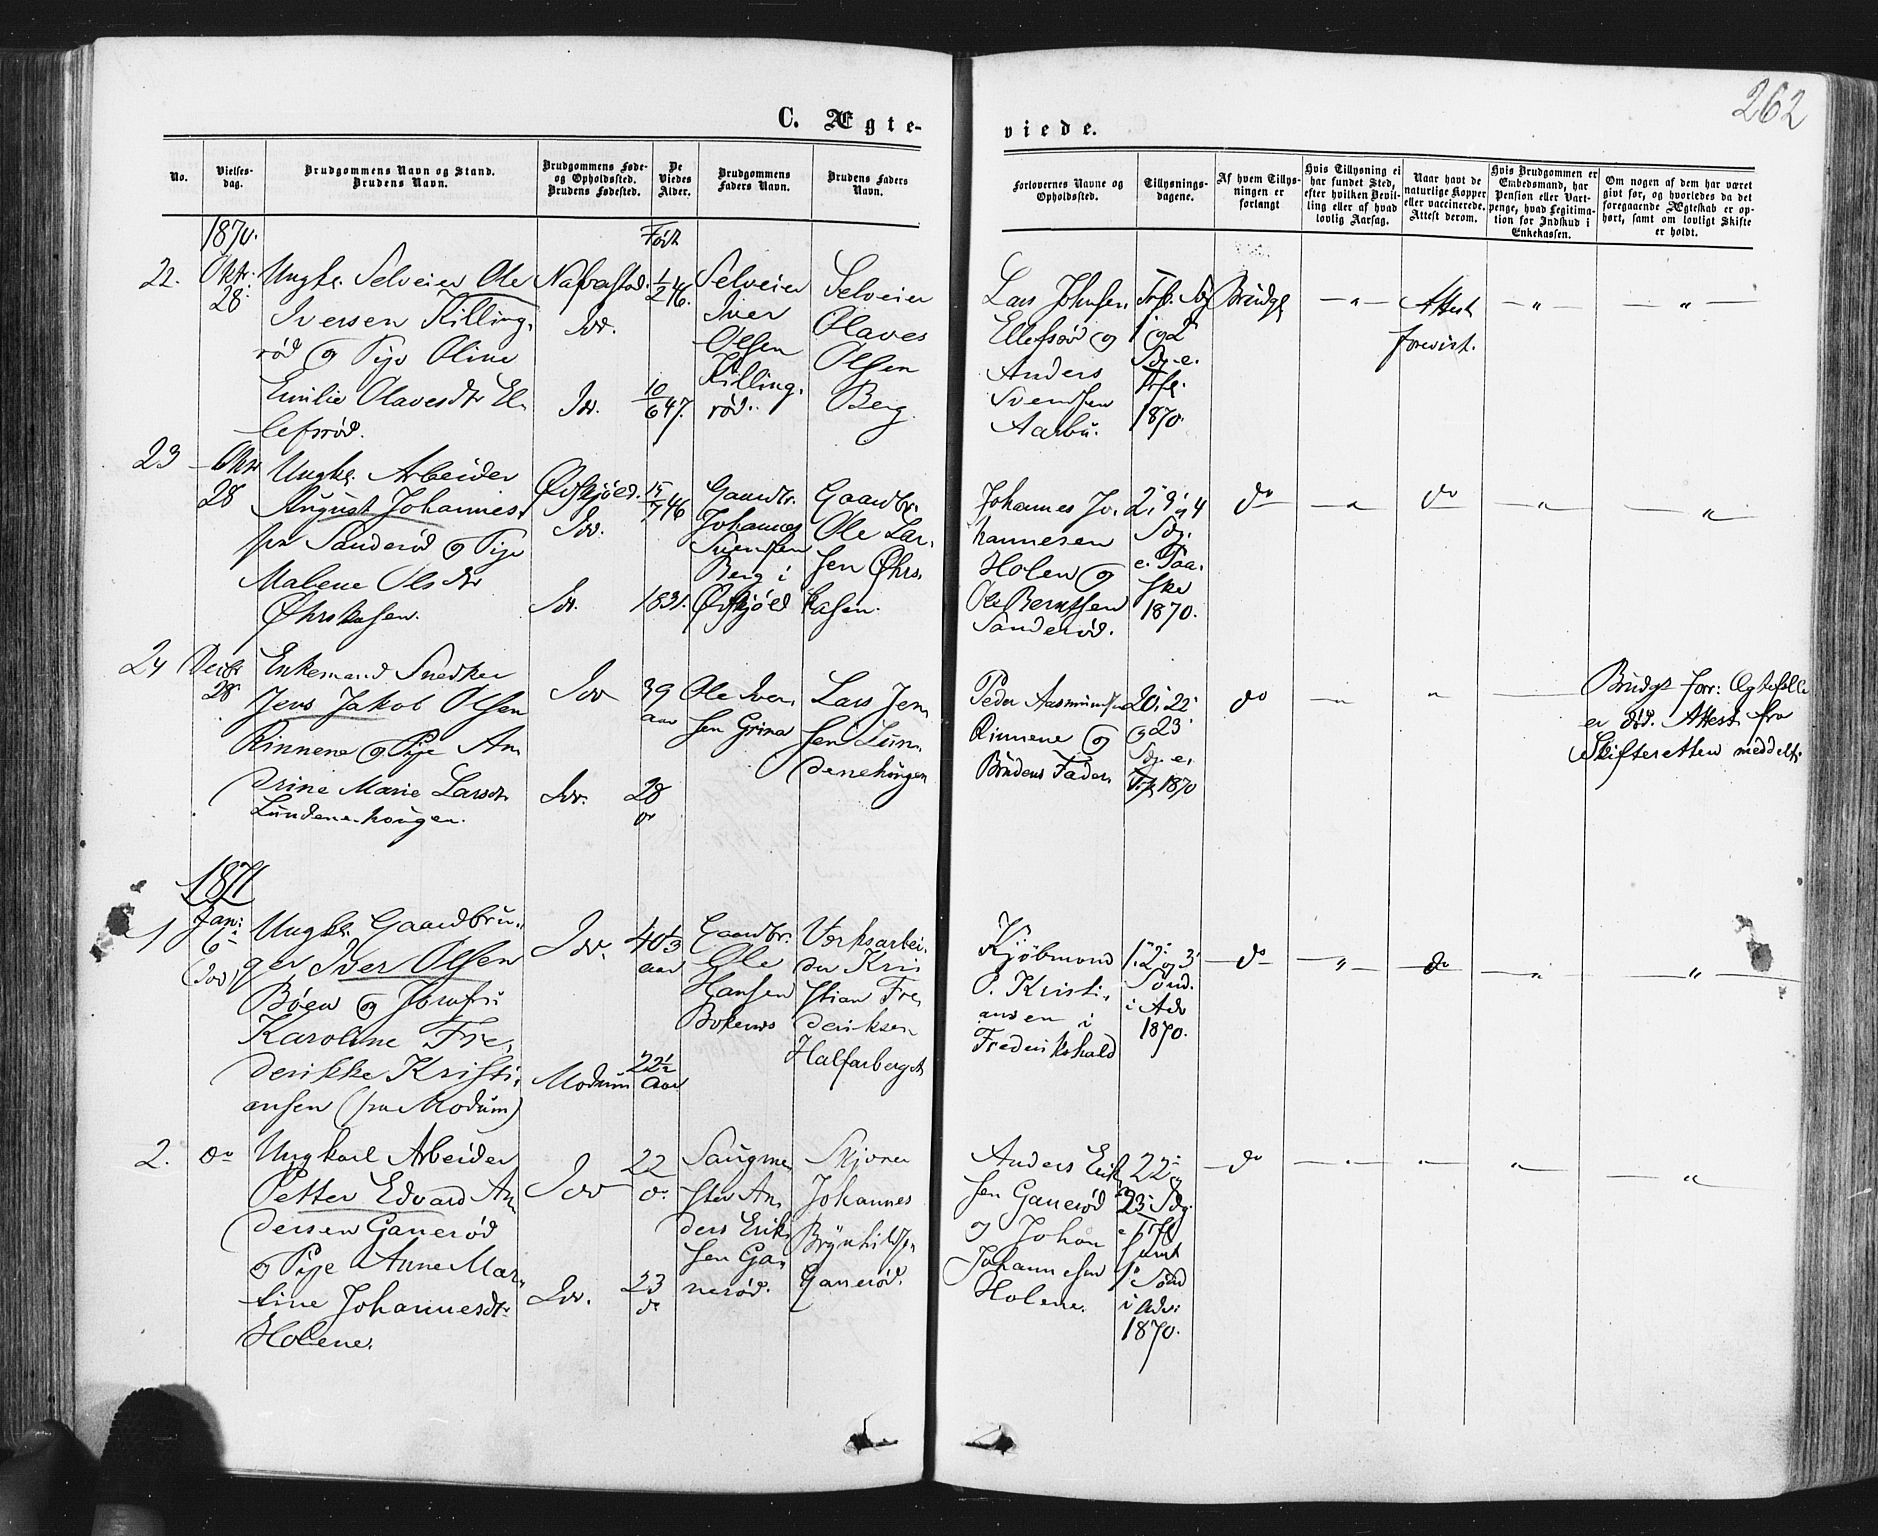 262
C. Ægte-
viede.
No.
Vielses-
dag.
Brudgommens Navn og Stand.
Brudens Navn.
Brudgommens Føde-
og Opholdssted.
Brudens Fødested.
De
Viedes
Alder.
Brudgommens
Faders Navn.
Brudens Faders
Navn.
Forlovernes Navne og
Opholdssted.
Tillysnings-
dagene.
Af hvem Tillys-
ningen er
forlangt
Hvis Tillysning ei
har fundet Sted,
efter hvilken Bevil-
ling eller af hvad
lovlig Aarsag.
Naar havt de
naturlige Kopper
eller vaccinerede.
Attest derom.
Hvis Brudgommen er
Embedsmand, har
Pension eller Vart-
penge, hvad Legitima-
tion for Indskud i
Enkekassen.
Om nogen af dem har været
gift før, og hvorledes da det
foregaaende Ægteskab er op-
hørt, samt om lovligt Skifte
er holdt.
1870.
Født
22.
Oktr.
28.
Ungk. Selveier Ole
Iversen Killing,
rød og Pige Oline
Emilie Olavesdtr El-
lefsrød.
Idd.
Idd.
1/2 46.
10/6 47.
Selveier
Iver
Olsen
Killing,
rød.
Selveier
Olaves
Olsen
Berg.
Lars Johnsen
Ellefsrød og
Anders
Svendsen
Aarbu.
1 og 2
Sdg. e.
Trfg.
1870.
Brudg
— " —
Attest
forevist.
— " —
— " —
23
Oktr
28
Ungk. Arbeider
August Johannes,
fra Sanderød og Pige
Malene Olsdtr
Øhrskasen.
Idd.
Idd.
15/7 46
1831.
Gaardbr.
Johannes
Svendsen
Berg i
Gaardbr.
Ole Lar,
sen Øhrs,
kasen.
Johannes Jo,
hannesen
Holen og
Ole Berntsen
Sanderød.
Sdg.
e. Paa,
ske
1870.
do
— " —
do
— " —
— " —
24
Decbr
28
Enkemand Snedker
Jens Jakob Olsen
Rinnene og Pige An
drine Marie Larsdtr
Lundenehougen.
Idd
Idd.
39
aar
28
do
Ole Iver,
sen Grina
Lars Jen
sen Lun,
denehougen
Peder Aasmundsen
Rinnene og
Brudens Fader.
20, 22
og 23
Sdg. e.
Trf. 1870
do
— " —
"
Brudgs forr: Ægtefælle
er død. Attest fra
Skifteretten meddelt.
1871
1
Jan:
6
(Idd)
Ungk. Gaardbru,
ger Iver Olsen
Böen og Jomfru
Karoline Fre,
derikke Kristi,
ansen (fra Modum)
Idd.
Modum
40 1/3
aar
22 1/2
aar
Gaardbr.
Ole
Hansen
Værksarbei,
der Kri
stian Fre,
deriksen
Halfarberget
Kjøbmand
O. Kristi,
ansen i
Frederikshald
1, 2 og 3
Sønd.
i Adv
1870.
do
— " —
do
— " —
— " —
2.
do
Ungkarl Arbeider
Petter Edvard An
dersen Ganerød
og Pige Anne Mar
tine Johannesdtr
Holene.
Idd
Idd.
22
do
23
do
Saugme
ster An,
ders Erik
sen Ga,
nerød.
Johannes
Brynhildsen
Ganerød.
Anders Erik
sen Ganerød
og Johan
Johannesen
Holene.
22 og
23 Sdg.
e. Trf.
samt
1 Sønd
i Adv:
1870.
do
— " —
"
— " —
— " —